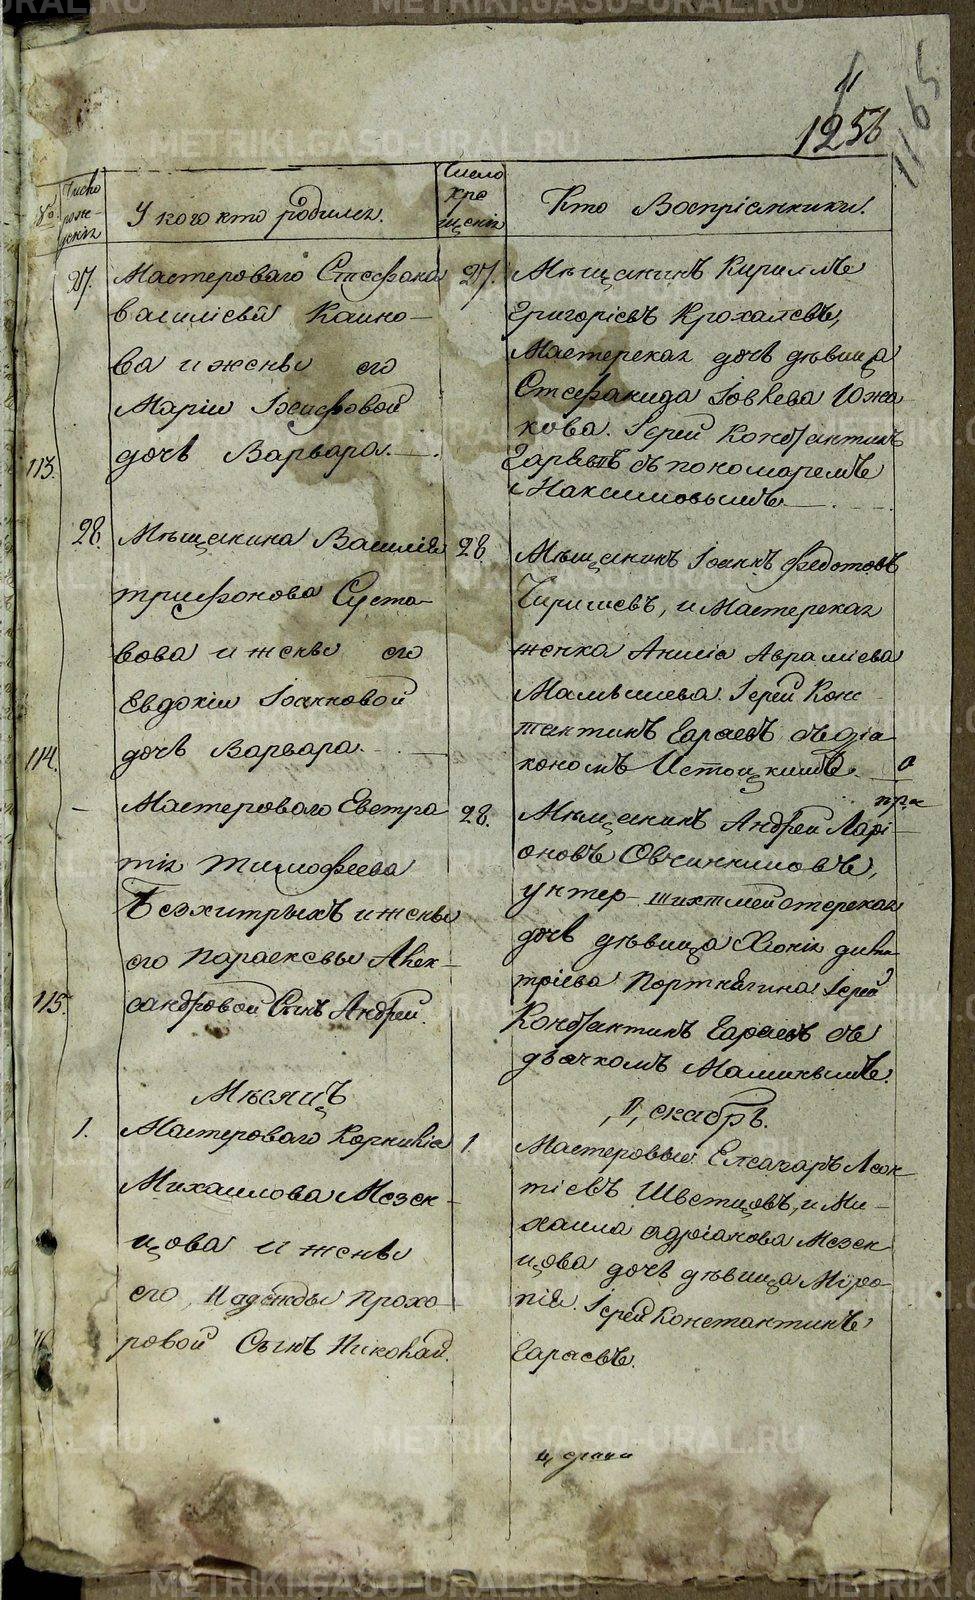 1256
1165
№
Число рож-дения
У кого кто родился.
Число кре щения
Кто Воспріемники.
27.
Мастероваго Стефана
василіева Каино-
ва и жены его
Маріи Іосифовой
дочь Варвара.
113.
27.
Мѣщанинъ Кириллъ
Григорьевъ Крохалевъ,
Мастерская дочь дѣвица
Стефанида Іовлева Южа
кова. Іерей Константинъ
Гараевъ съ пономаремъ
Максимовымъ
28.
Мѣщанина Василія
трифонова Суста-
вова и жены его
Евдокіи Іоанновой
дочь Варвара.
114.
28.
Мѣщанинъ Іоаннъ Федотовъ
Чирьевъ, и Мастерская
женка Анисія Авраміева
Малышева. Іерей Конс
тантинъ Гараевъ съ діа
кономъ Истоцкимъ.
Мастероваго Евстра
тія тимофеева
Безхитрыхъ и жены
его Параскевы Алек-
сандровой Сынъ Андрей.
115.
28.
Мѣщанинъ Андрей Ларі-
оновъ Овчинниковъ,
унтер шихтмейстерская
дочь дѣвица Хіонія дими
тріева Портнягина Іерей
Константинъ Гараевъ съ
дьячкомъ Маминымъ.
Мѣсяцъ
Декабрь.
1.
Мастероваго Корнилія
Михаилова Мезен-
цова и жены
его, Надежды Прохо-
ровой Сынъ Николай.
1.
Мастеровые Елеазаръ Леон
тіевъ Швецовъ, и Ми-
хаила Адріанова Мезен
цова дочь дѣвица Мѵро-
пія. Іерей Константинъ
Гараевъ.
METRIKI.GASO-URAL.RU